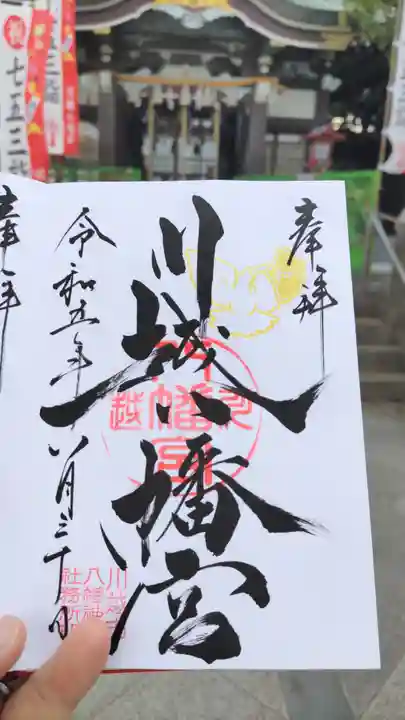 奉拝
川越八幡宮
令和五年八月三十日
八幡宮
越
川越
八幡神
社務所
奉拝
七五三